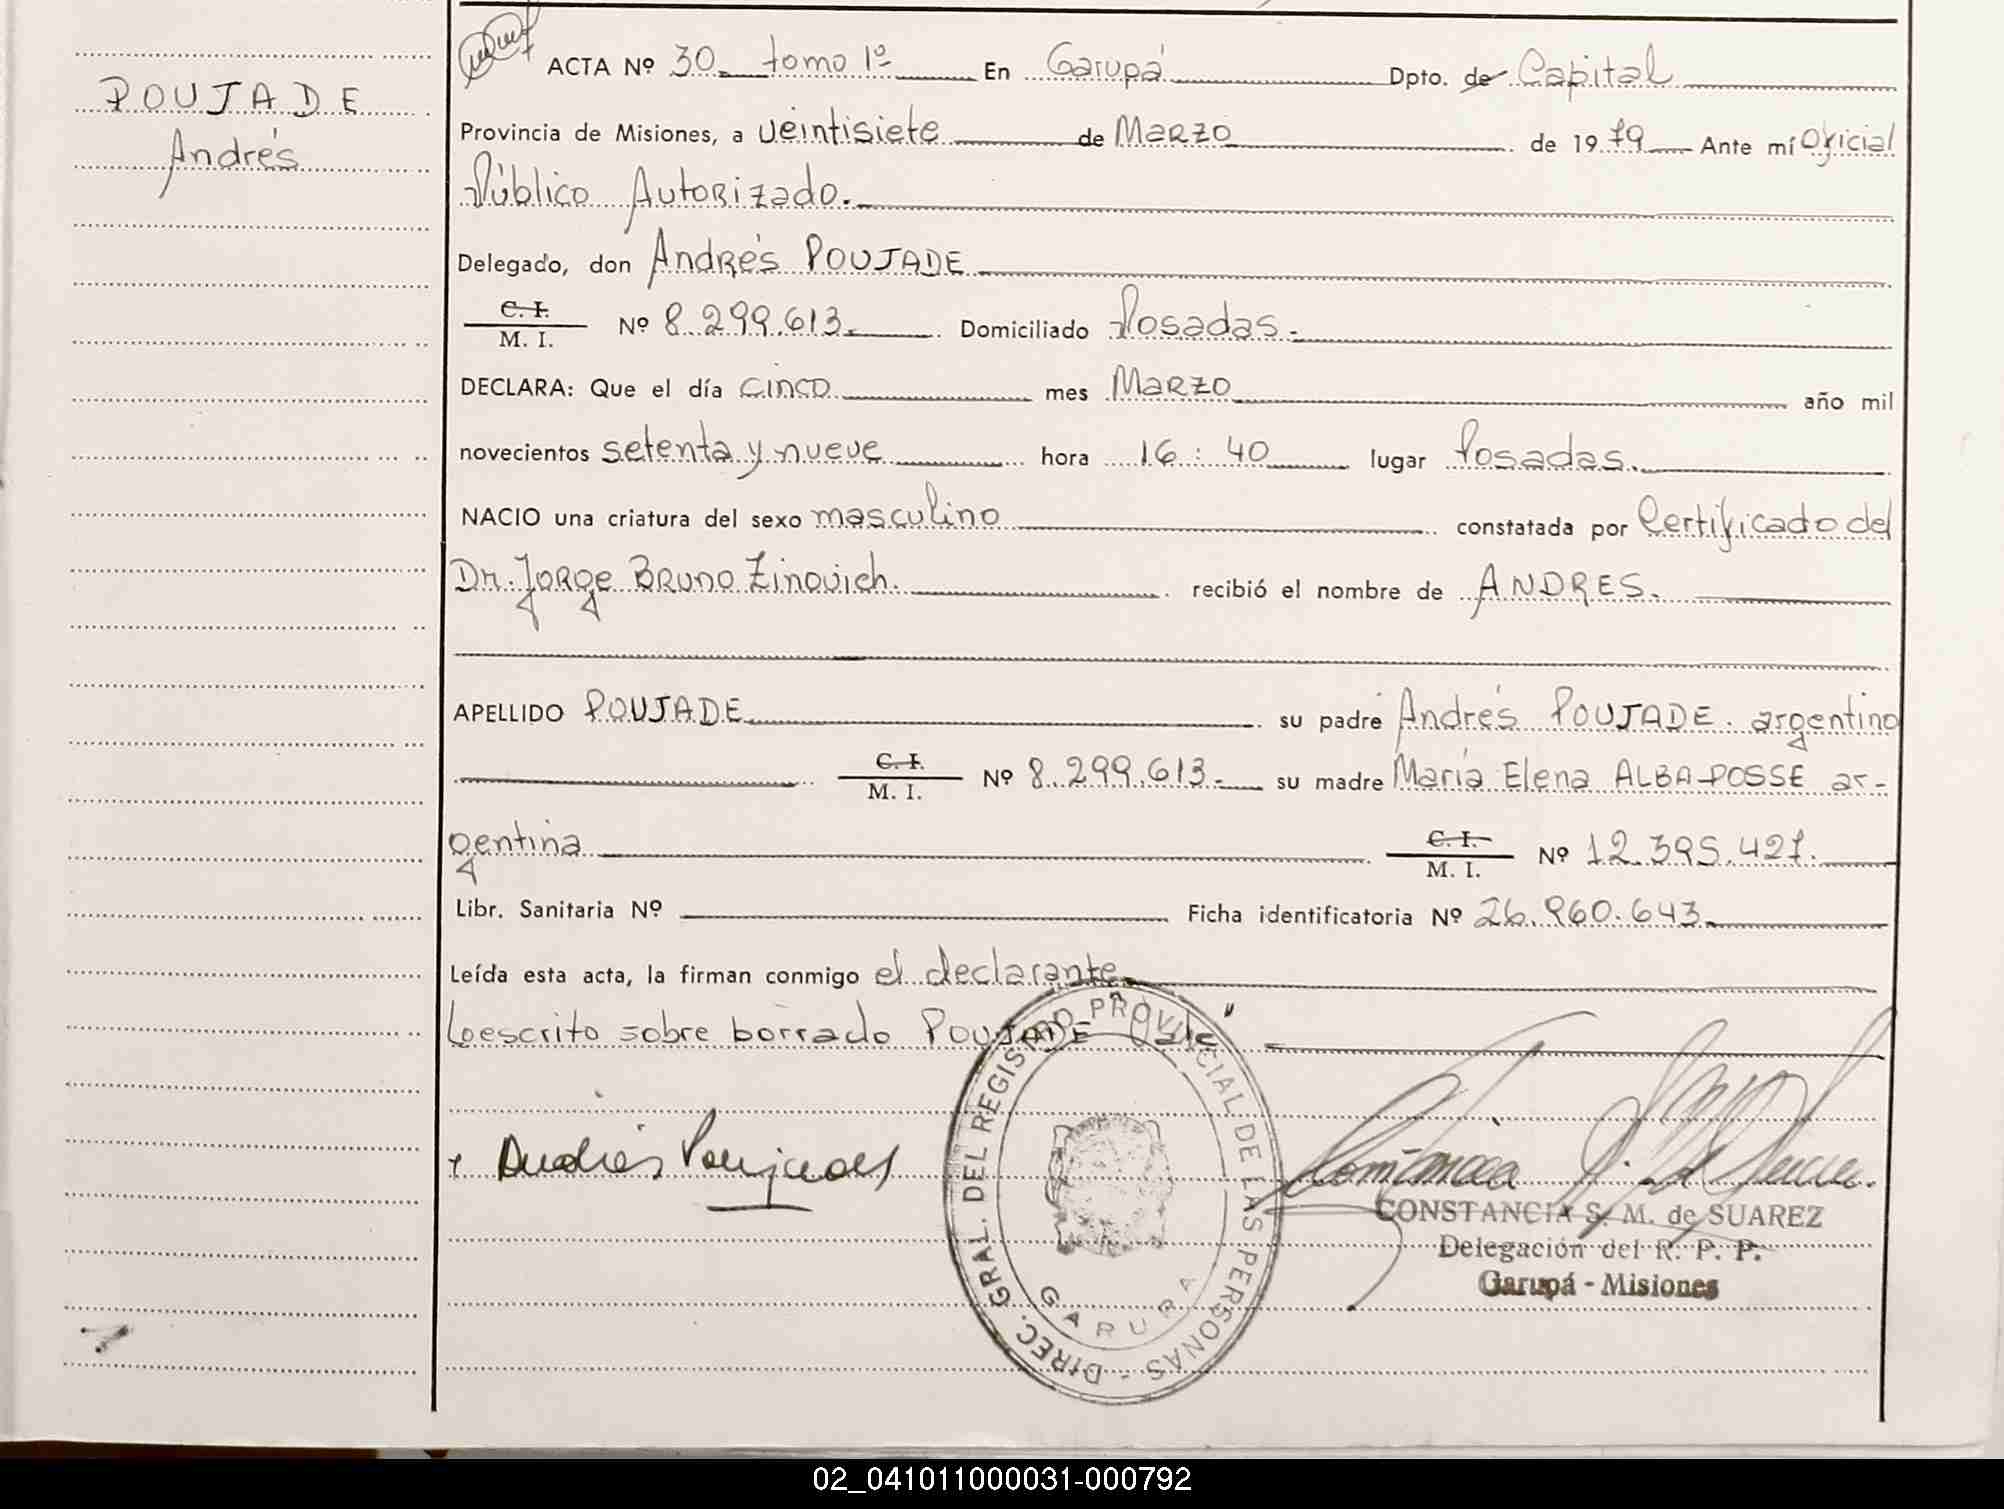 POUJADE
Andrés
ACTA Nº 30 tomo 1º En Garupá Dpto. de Capital
Provincia de Misiones, a veintisiete de Marzo de 1979 Ante mí Oficial
Público Autorizado.
Delegado, don Andrés POUJADE
C. I.
M. I. Nº 8.299.613. Domiciliado Posadas.
DECLARA: Que el día cinco mes Marzo año mil
novecientos setenta y nueve hora 16:40 lugar Posadas.
NACIO una criatura del sexo masculino constatada por Certificado del
Dr. Jorge Bruno Zinovich. recibió el nombre de ANDRES.
APELLIDO POUJADE su padre Andrés POUJADE. argentino
C. I.
M. I. Nº 8.299.613. su madre María Elena ALBA POSSE ar-
gentina C. I.
M. I. Nº 12.395.427.
Libr. Sanitaria Nº Ficha identificatoria Nº 26.960.643.
Leída esta acta, la firman conmigo el declarante.
Lo escrito sobre borrado POUJADE "Vale"
Andrés Poujade
DIREC. GRAL. DEL REGISTRO PROVINCIAL DE LAS PERSONAS -
GARUPA
CONSTANCIA S. M. de SUAREZ
Delegación del R. P. P.
Garupá - Misiones
02_041011000031-000792